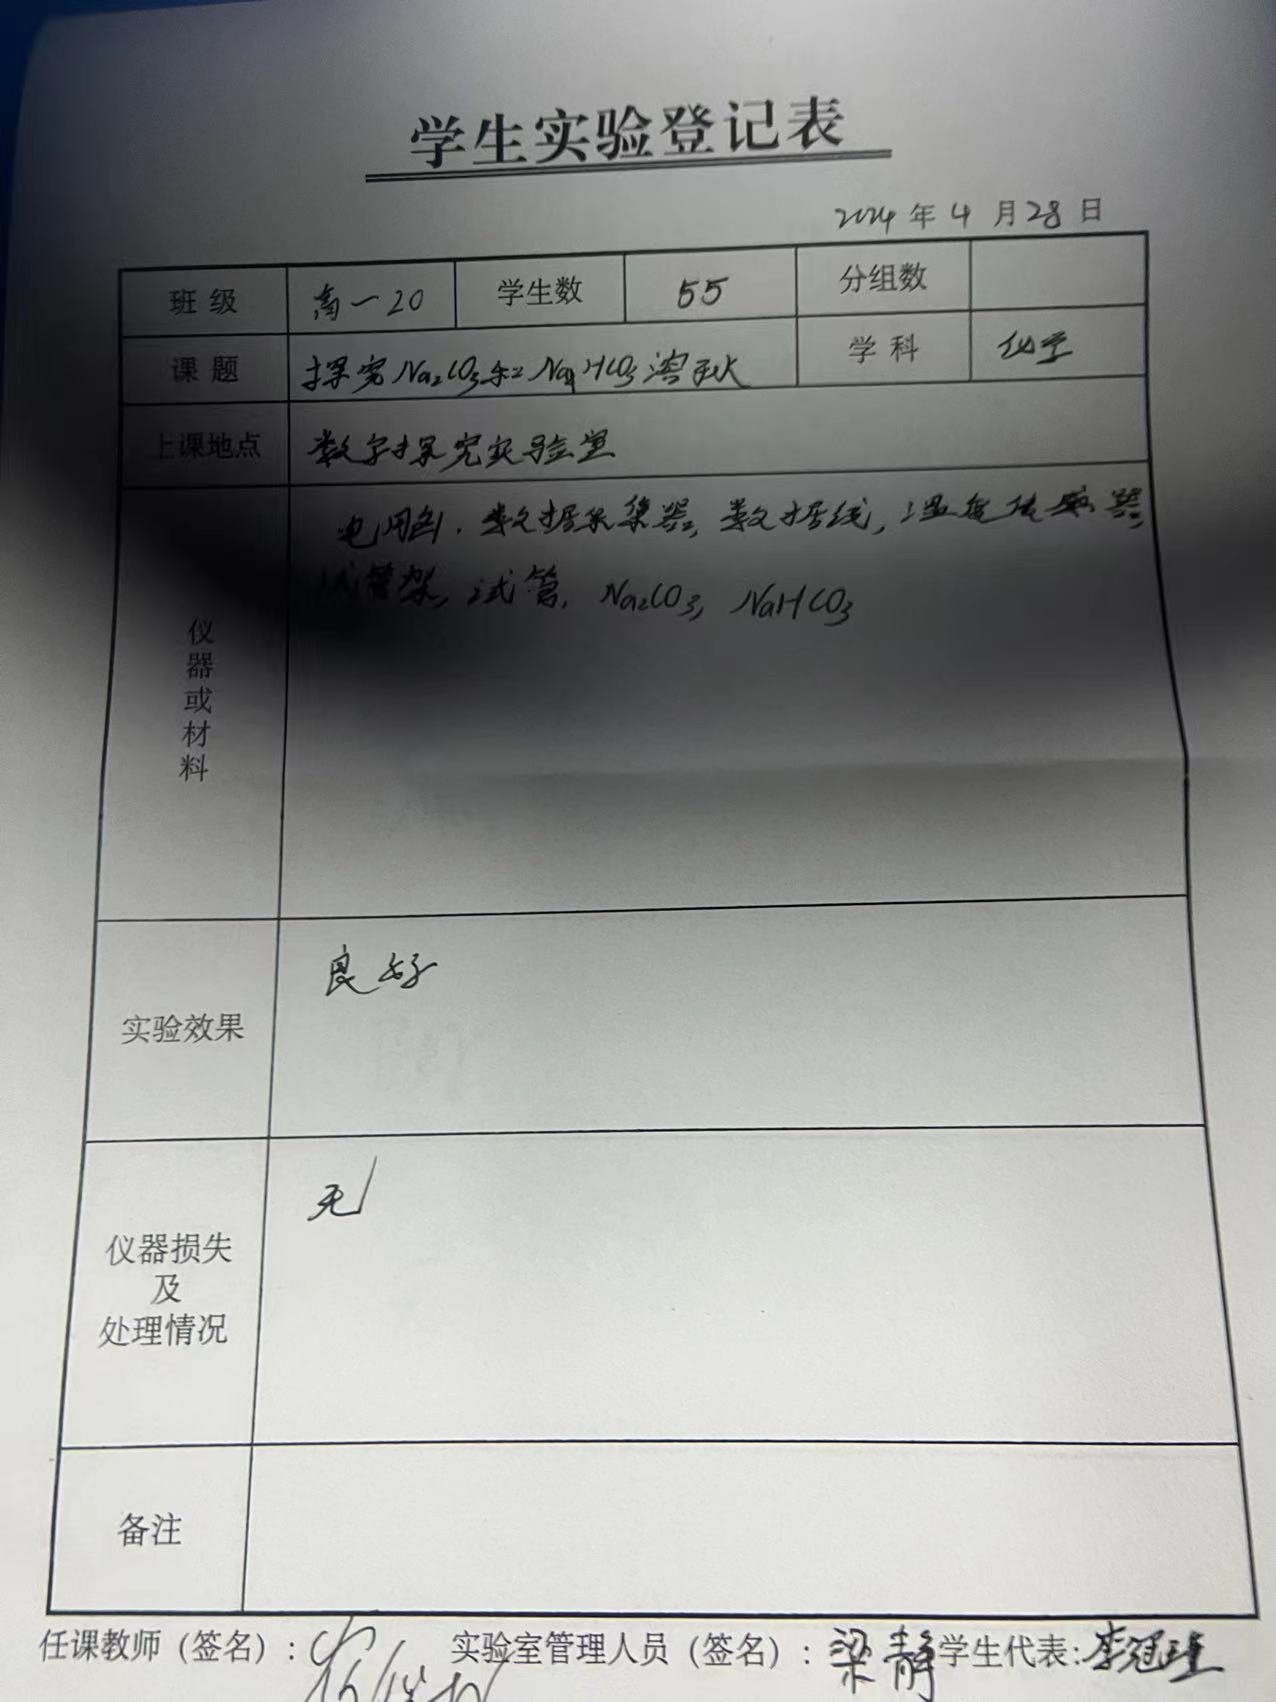 学生实验登记表
2024年4月28日
班级 高一20 学生数 55 分组数
课题 探究Na2CO3和NaHCO3溶于水 学科 化学
上课地点 数字探究实验室
仪器或材料
电脑、数据采集器,数据线,温度传感器,
试管架,试管,Na2CO3,NaHCO3
实验效果 良好
仪器损失
及
处理情况
无
备注
任课教师(签名): 实验室管理人员(签名):梁静 学生代表:李冠